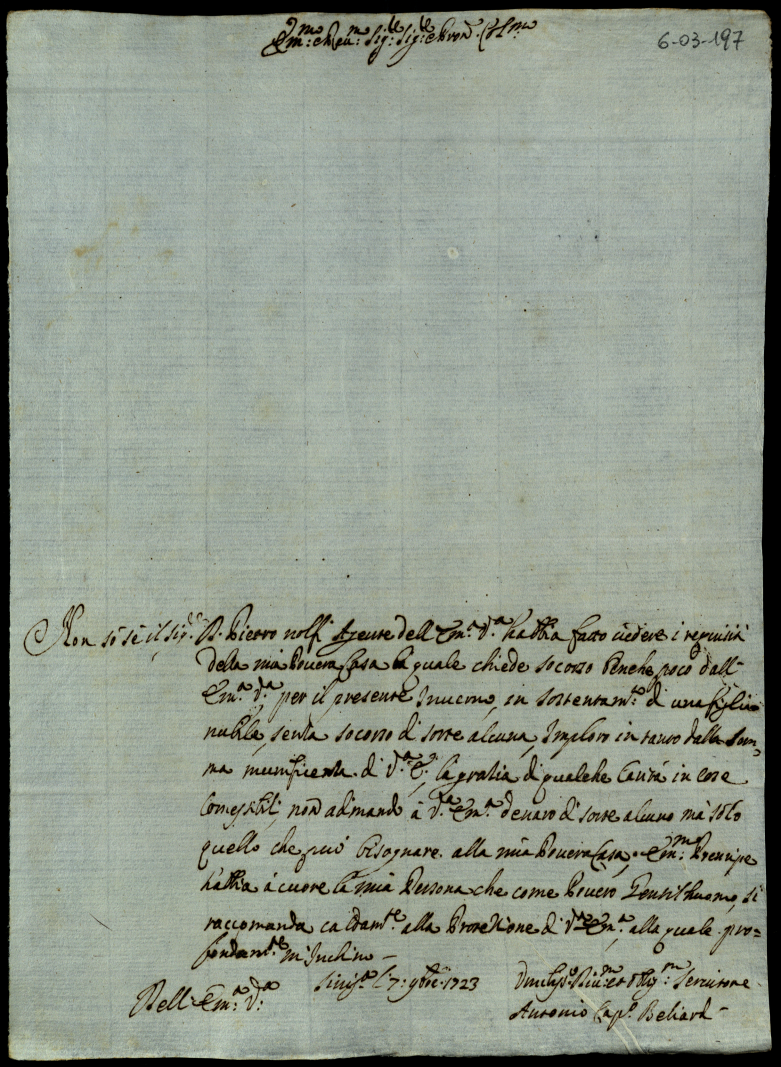 Em:mo e Reu:mo Sig:re Sig:re e Pron: Col:mo
6-03-197
Non sò sè il Sig:re D. Pietro nolfi Agente dell Em:a V:a habbia fatto uedere i requisiti
della mia Pouera Casa la quale chiede socorso benche poco dall'
Em:a V:a per il presente Inuerno, in sostentam:to di una figlia
nubile, senza socorso di sorte alcuna, Imploro in tanto dalla Som=
ma munificenza di V:a E:, la gratia di qualche Carità in cose
Comestibili, non adimando à V:a Em:a denaro di sorte alcuno mà solo
quello che può bisognare alla mia Pouera Casa, Em:mo Prencipe
habbia à cuore la mia Persona che come Pouero Gentilhuomo, si
raccomanda caldam:te alla Protezione di V:a Em:a, alla quale pro=
fondam:te m'Inchino
Sinig:a li 7: 9bre 1723
Dell Em:a V:a
Seruitore
Antonio Cap:o Beliardi